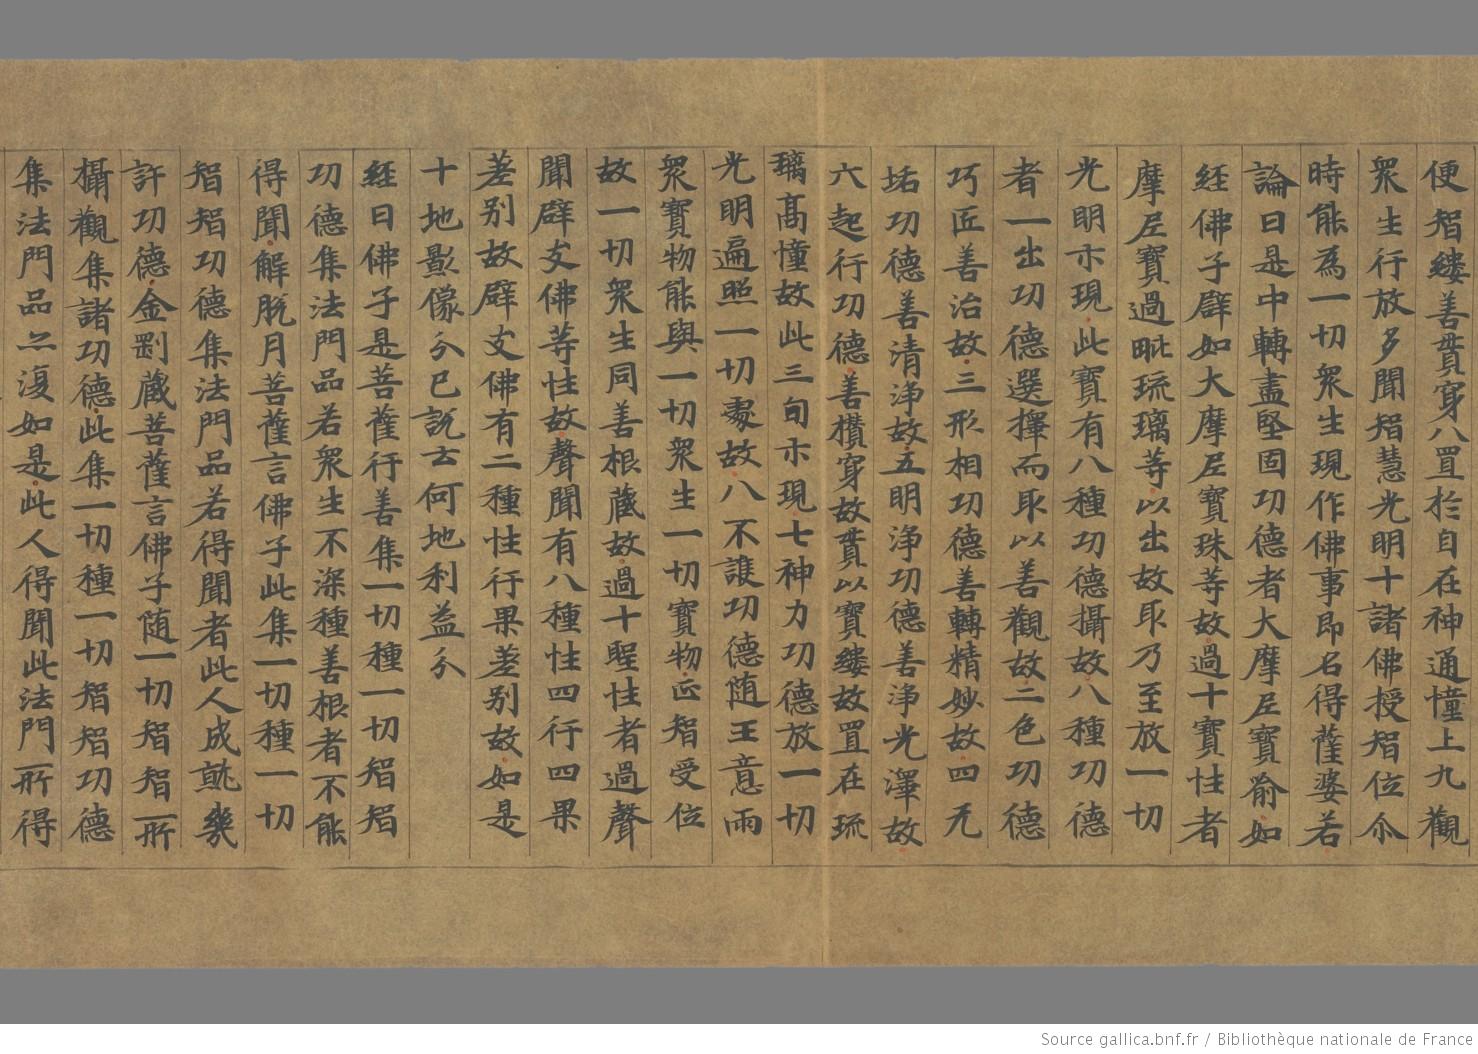 便智縷善貫穿八置於自在神通憧上九觀
衆生行放多聞智慧光明十諸佛授智位尒
時能為一切衆生現作佛事即名得薩婆若
論曰是中轉盡堅固功德者大摩尼寶喻如
經佛子譬如大摩尼寶珠等故過十寶性者
摩尼寶過毗琉璃等以出故取乃至放一切
光明示現此寶有八種功德攝故八種功德
者一出功德選擇而取以善觀故二色功德
巧匠善治故三形相功德善轉精妙故四无
垢功德善清淨故五明淨功德善淨光澤故
六起行功德善攢穿故貫以寶縷故置在琉
璃高憧故此三句示現七神力功德放一切
光明遍照一切處故八不護功德随王意雨
衆寶物能與一切衆生一切寶物正智受位
故一切衆生同善根藏故過十聖性者過聲
聞辟支佛等性故聲聞有八種性四行四果
差别故辟支佛有二種性行果差别故如是
十地影像分已說云何地利益分
經曰佛子是菩薩行善集一切種一切智智
功德集法門品若衆生不深種善根者不能
得聞解脫月菩薩言佛子此集一切種一切
智智功德集法門品若得聞者此人成就幾
許功德金剛藏菩薩言佛子随一切智智所
攝觀集諸功德此集一切種一切智智功德
集法門品亦復如是此人得聞此法門所得
Source gallica.bnf.fr / Bibliothèque nationale de France